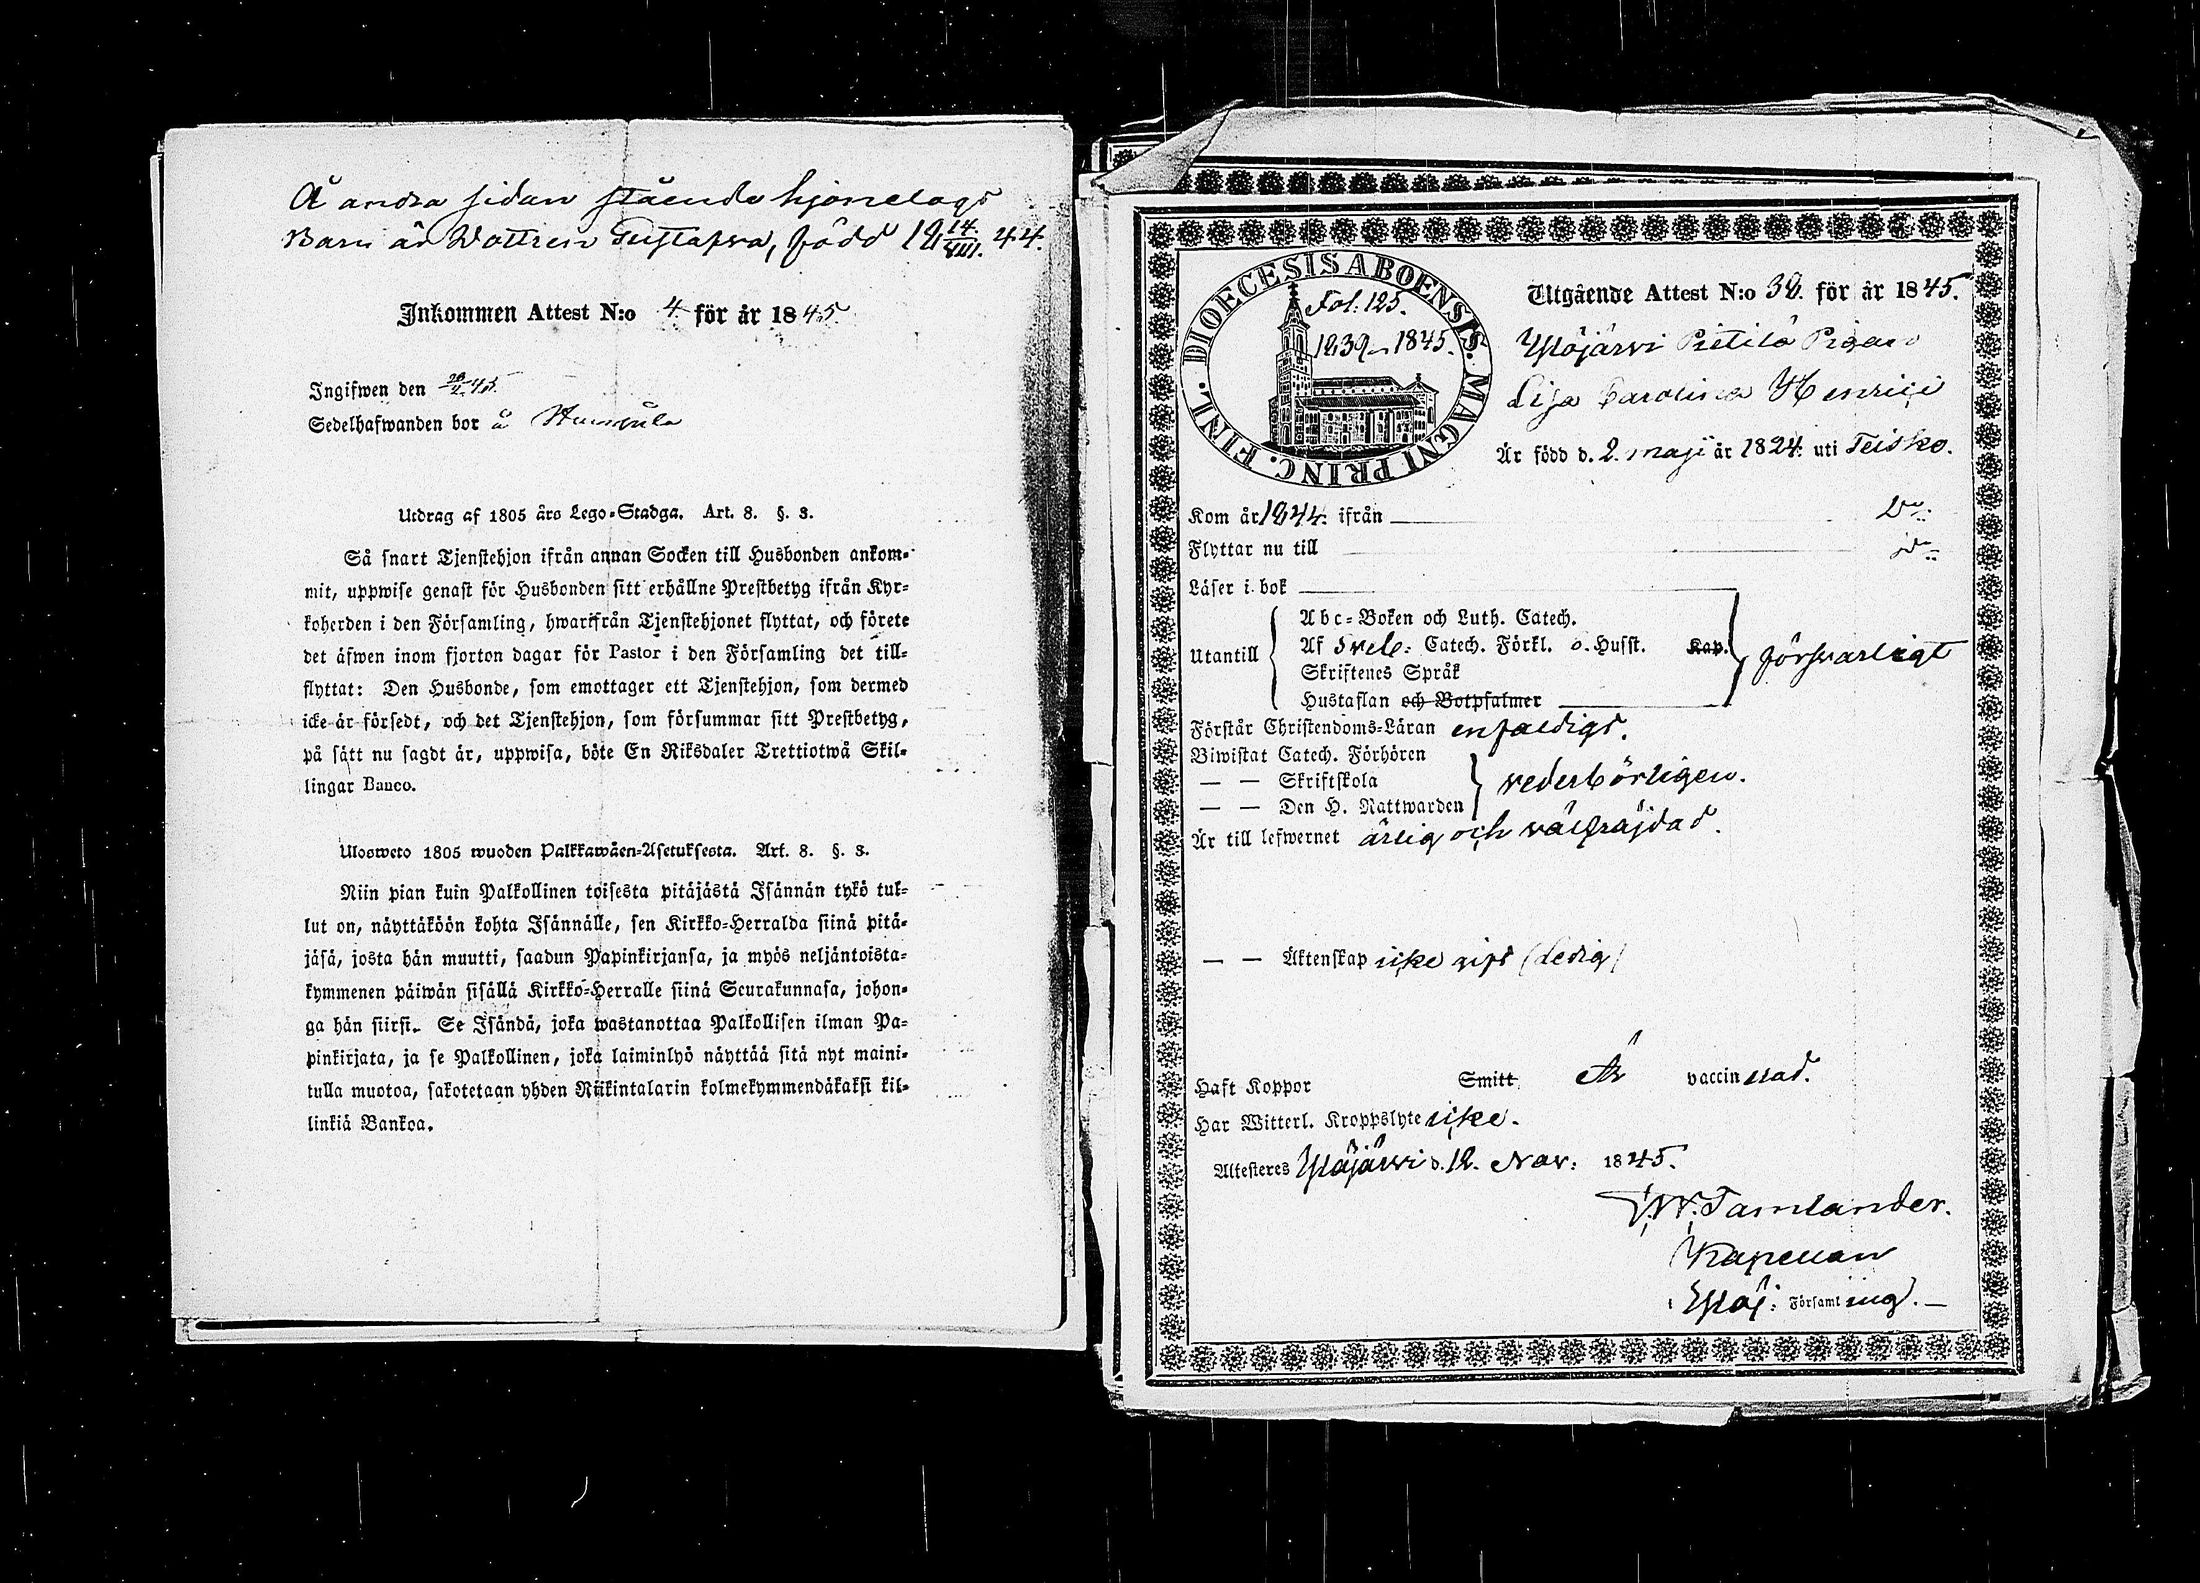 Å andra sidan stående hjonelags
Barn är Dottren Gustafva, född 18 14/VIII. 44.
Inkommen Attest N:o 4 för år 1845.
Ingifwen den 45.
Sedelhafwanden bor å
Utdrag af 1805 års Lego-Stadga. Art. 8. §. 3.
Så snart Tjenstehjon ifrån annan Socken till Husbonden ankom-
mit, uppwise genast för Husbonden sitt erhållne Prestbetyg ifrån Kyr-
koherden i den Församling, hwarifrån Tjenstehjonet flyttat, och förete
det äfwen inom fjorton dagar för Pastor i den Församling det till-
flyttat: Den Husbonde, som emottager ett Tjenstehjon, som dermed
icke är försedt, och det Tjenstehjon, som försummar sitt Prestbetyg,
på sätt nu sagdt är, uppwisa, böte En Riksdaler Trettiotwå Skil-
lingar Banco.
Ulosweto 1805 wuoden Palkkawäen-Asetuksesta. Art. 8. §. 3.
Niin pian kuin Palkollinen toisesta pitäjästä Isännän tykö tul-
lut on, näyttäköön kohta Isännälle, sen Kirkko-Herralda siinä pitä-
jäsä, josta hän muutti, saadun Papinkirjansa, ja myös neljäntoista-
kymmenen päiwän sisällä Kirkko-Herralle siinä Seurakunnasa, johon-
ga hän siirsi. Se Isändä, joka wastanottaa Palkollisen ilman Pa-
pinkirjata, ja se Palkollinen, joka laiminlyö näyttää sitä nyt maini-
tulla muotoa, sakotetaan yhden Riikintalarin kolmekymmendäkaksi kil-
linkiä Bankoa.
DIOECESIS ABOENSIS. MAGNI PRINC. FINL.
Fol: 125.
1839–1845.
Utgående Attest N:o 38. för år 1845.
Ylöjärvi Pietilä Pigan
Lisa Carolina Henrici
Är född d. 2. maji år 1824. uti Teisko.
Kom år 1844. ifrån
Flyttar nu till
Läser i bok
Utantill
Abc-Boken och Luth. Catech.
Af Sveb: Catech. Förkl. o. Husst. Kap.
Skriftenes Språk
Hustaflan och Botpsalmer
försvarligt
Förstår Christendoms-Läran enfaldigt.
Biwistat Catech. Förhören
— — Skriftskola
— — Den H. Nattwarden
vederbörligen.
Är till lefwernet ärlig och välfräjdad.
— — Äktenskap icke gift (ledig)
Haft Koppor Smitt Är vaccinerad.
Har Witterl. Kroppslyte icke.
Attesteres Ylöjärvi d. 12. Nov: 1845.
Tamlander.
Kapellan
i Ylöj: Församling.